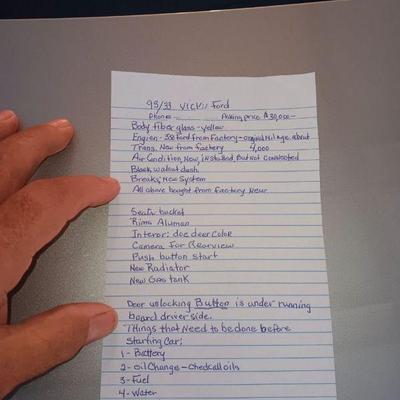 95/33 Vicki's Ford
Phone: Asking price $30,000—
Body fiber glass - yellow
Engien - 350 Ford from Factory - original milage about
Trans. New from factery 4,000
Air Condition, New, installed, But not connected
Black walnut dash
Breaks; New System
All above bought from factery New
Seats bucket
Rims Aluman
Interor: doe deer color
Camera For Rearview
Push button start
New Radiator
New Gas tank
Door unlocking Button is under running
board driver side.
Things that Need to be done before
Starting Car:
1 - Battery
2 - oil Change - Check all oils
3 - Fuel
4 - Water